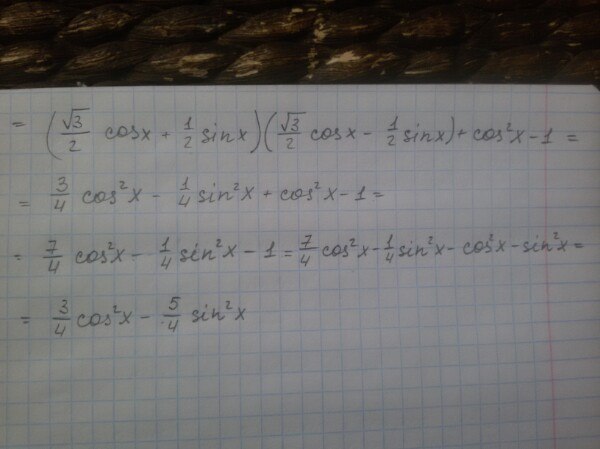 = (√3/2 cosx + 1/2 sinx)(√3/2 cosx - 1/2 sinx) + cos²x - 1 =
= 3/4 cos²x - 1/4 sin²x + cos²x - 1 =
= 7/4 cos²x - 1/4 sin²x - 1 = 7/4 cos²x - 1/4 sin²x - cos²x - sin²x =
= 3/4 cos²x - 5/4 sin²x